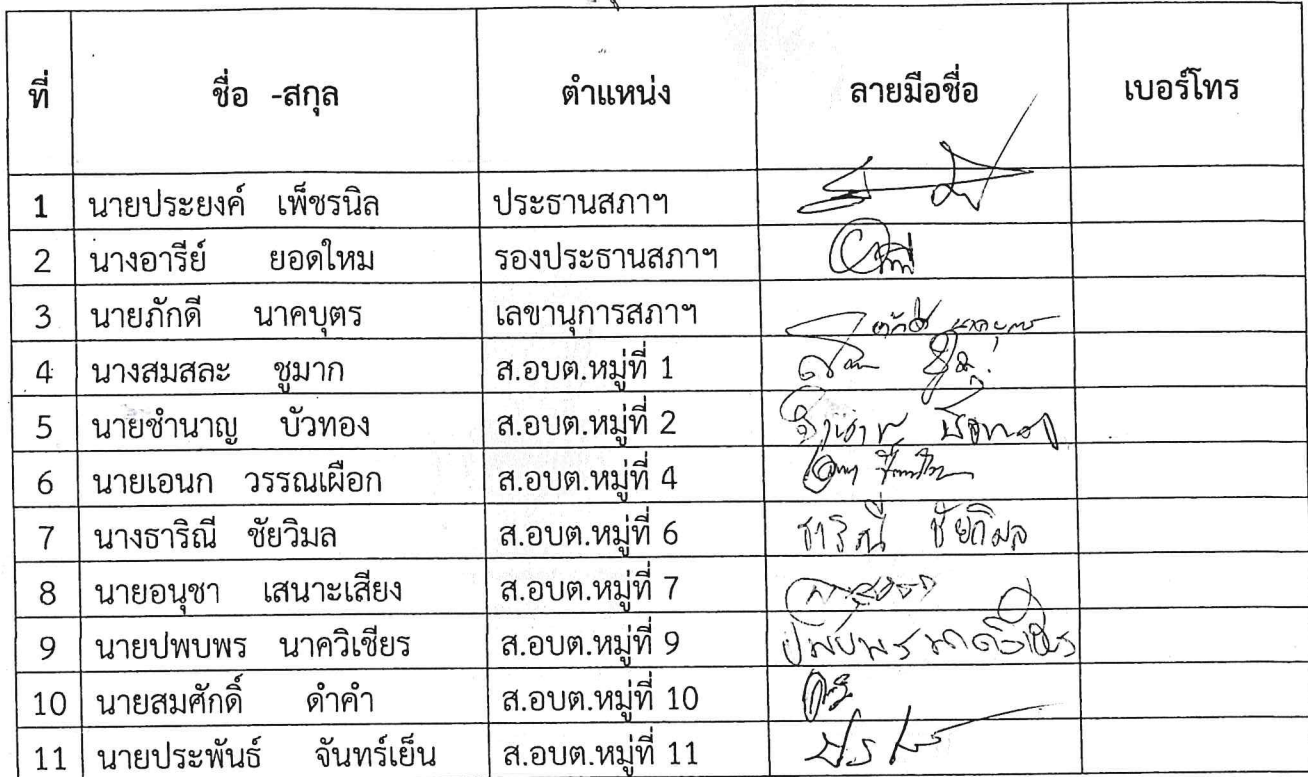 ที่ ชื่อ -สกุล ตำแหน่ง ลายมือชื่อ เบอร์โทร
1 นายประยงค์ เพ็ชรนิล ประธานสภาฯ
2 นางอารีย์ ยอดใหม รองประธานสภาฯ
3 นายภักดี นาคบุตร เลขานุการสภาฯ ภักดี นาคบุตร
4 นางสมสละ ชูมาก ส.อบต.หมู่ที่ 1
5 นายชำนาญ บัวทอง ส.อบต.หมู่ที่ 2 ชำนาญ บัวทอง
6 นายเอนก วรรณเผือก ส.อบต.หมู่ที่ 4
7 นางธาริณี ชัยวิมล ส.อบต.หมู่ที่ 6 ธาริณี ชัยวิมล
8 นายอนุชา เสนาะเสียง ส.อบต.หมู่ที่ 7
9 นายปพบพร นาควิเชียร ส.อบต.หมู่ที่ 9 ปพบพร นาควิเชียร
10 นายสมศักดิ์ ดำคำ ส.อบต.หมู่ที่ 10
11 นายประพันธ์ จันทร์เย็น ส.อบต.หมู่ที่ 11